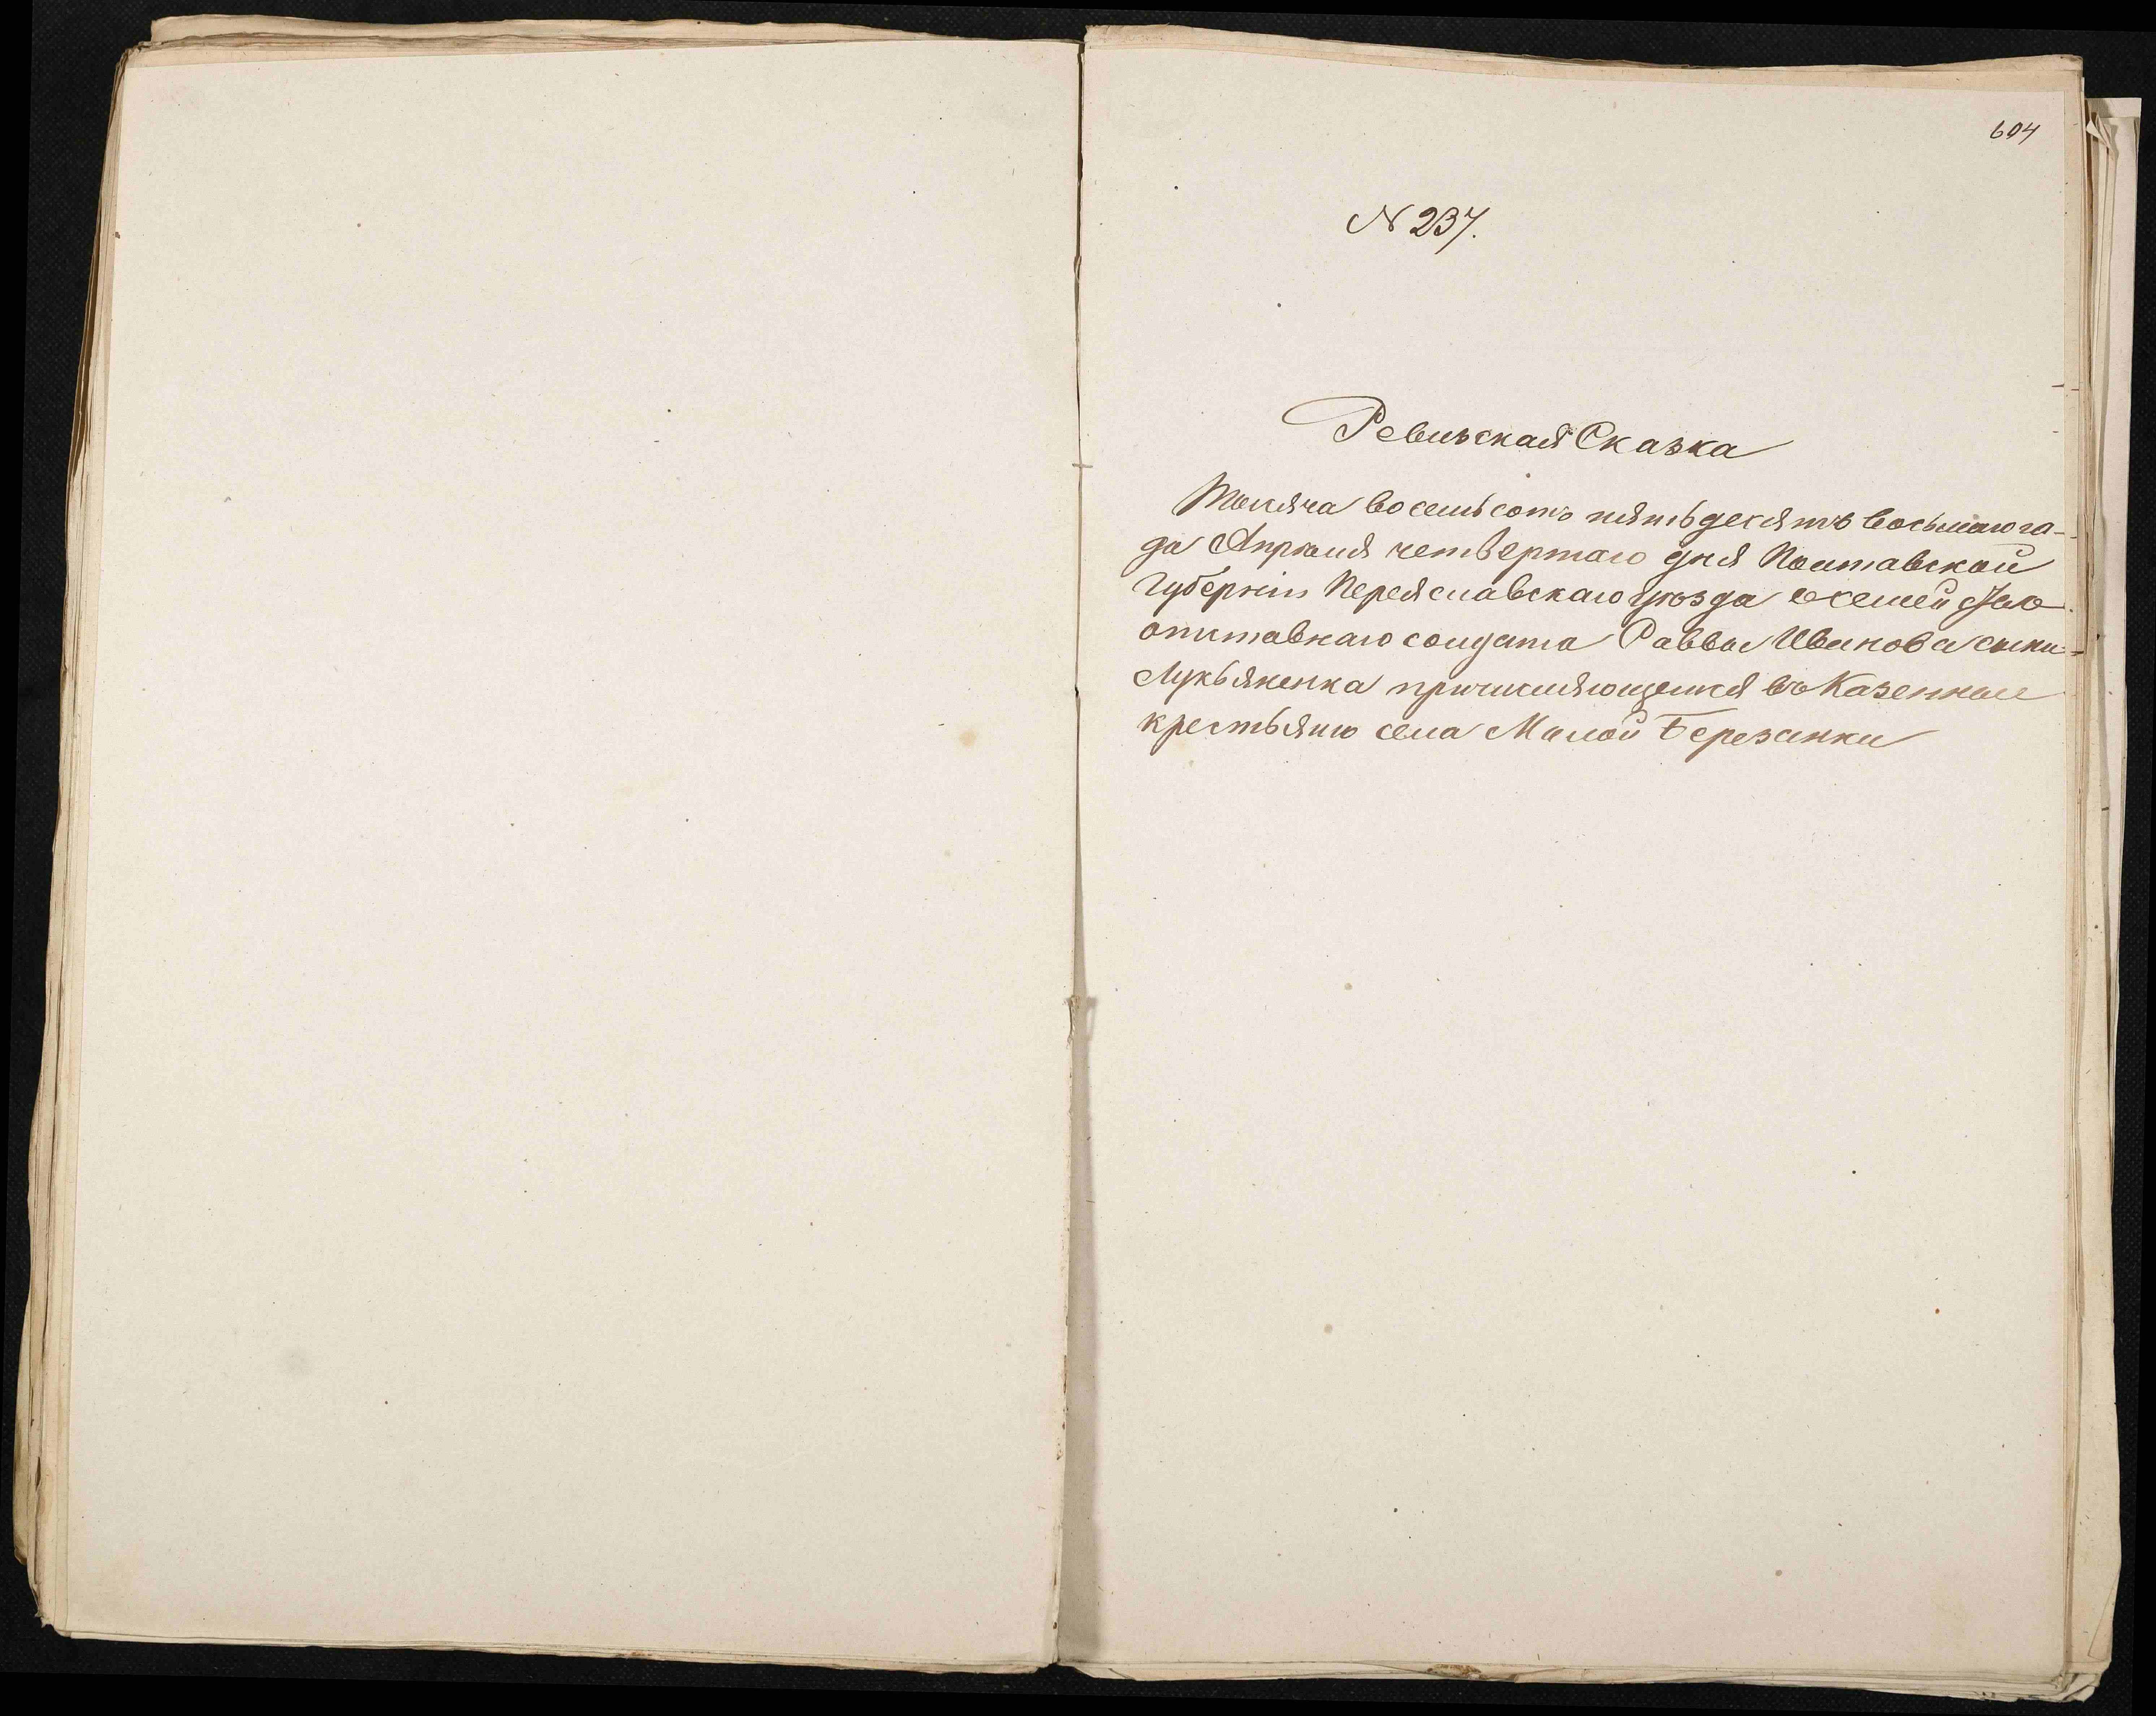 604
N 237.
Ревизская Сказка
Тысяча восемьсотъ пятьдесятъ восьмаго го-
да Апрѣля четвертаго дня Полтавской
Губерніи Переяславскаго уѣзда о семьѣ
отставнаго солдата Саввы Иванова сына
Лукьяненка причисляющемся въ Казенные
крестьяне села Малой Березанки